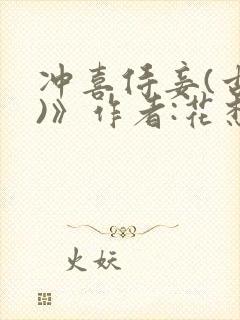 冲喜侍妾(古
)》作者:花愁
火妖